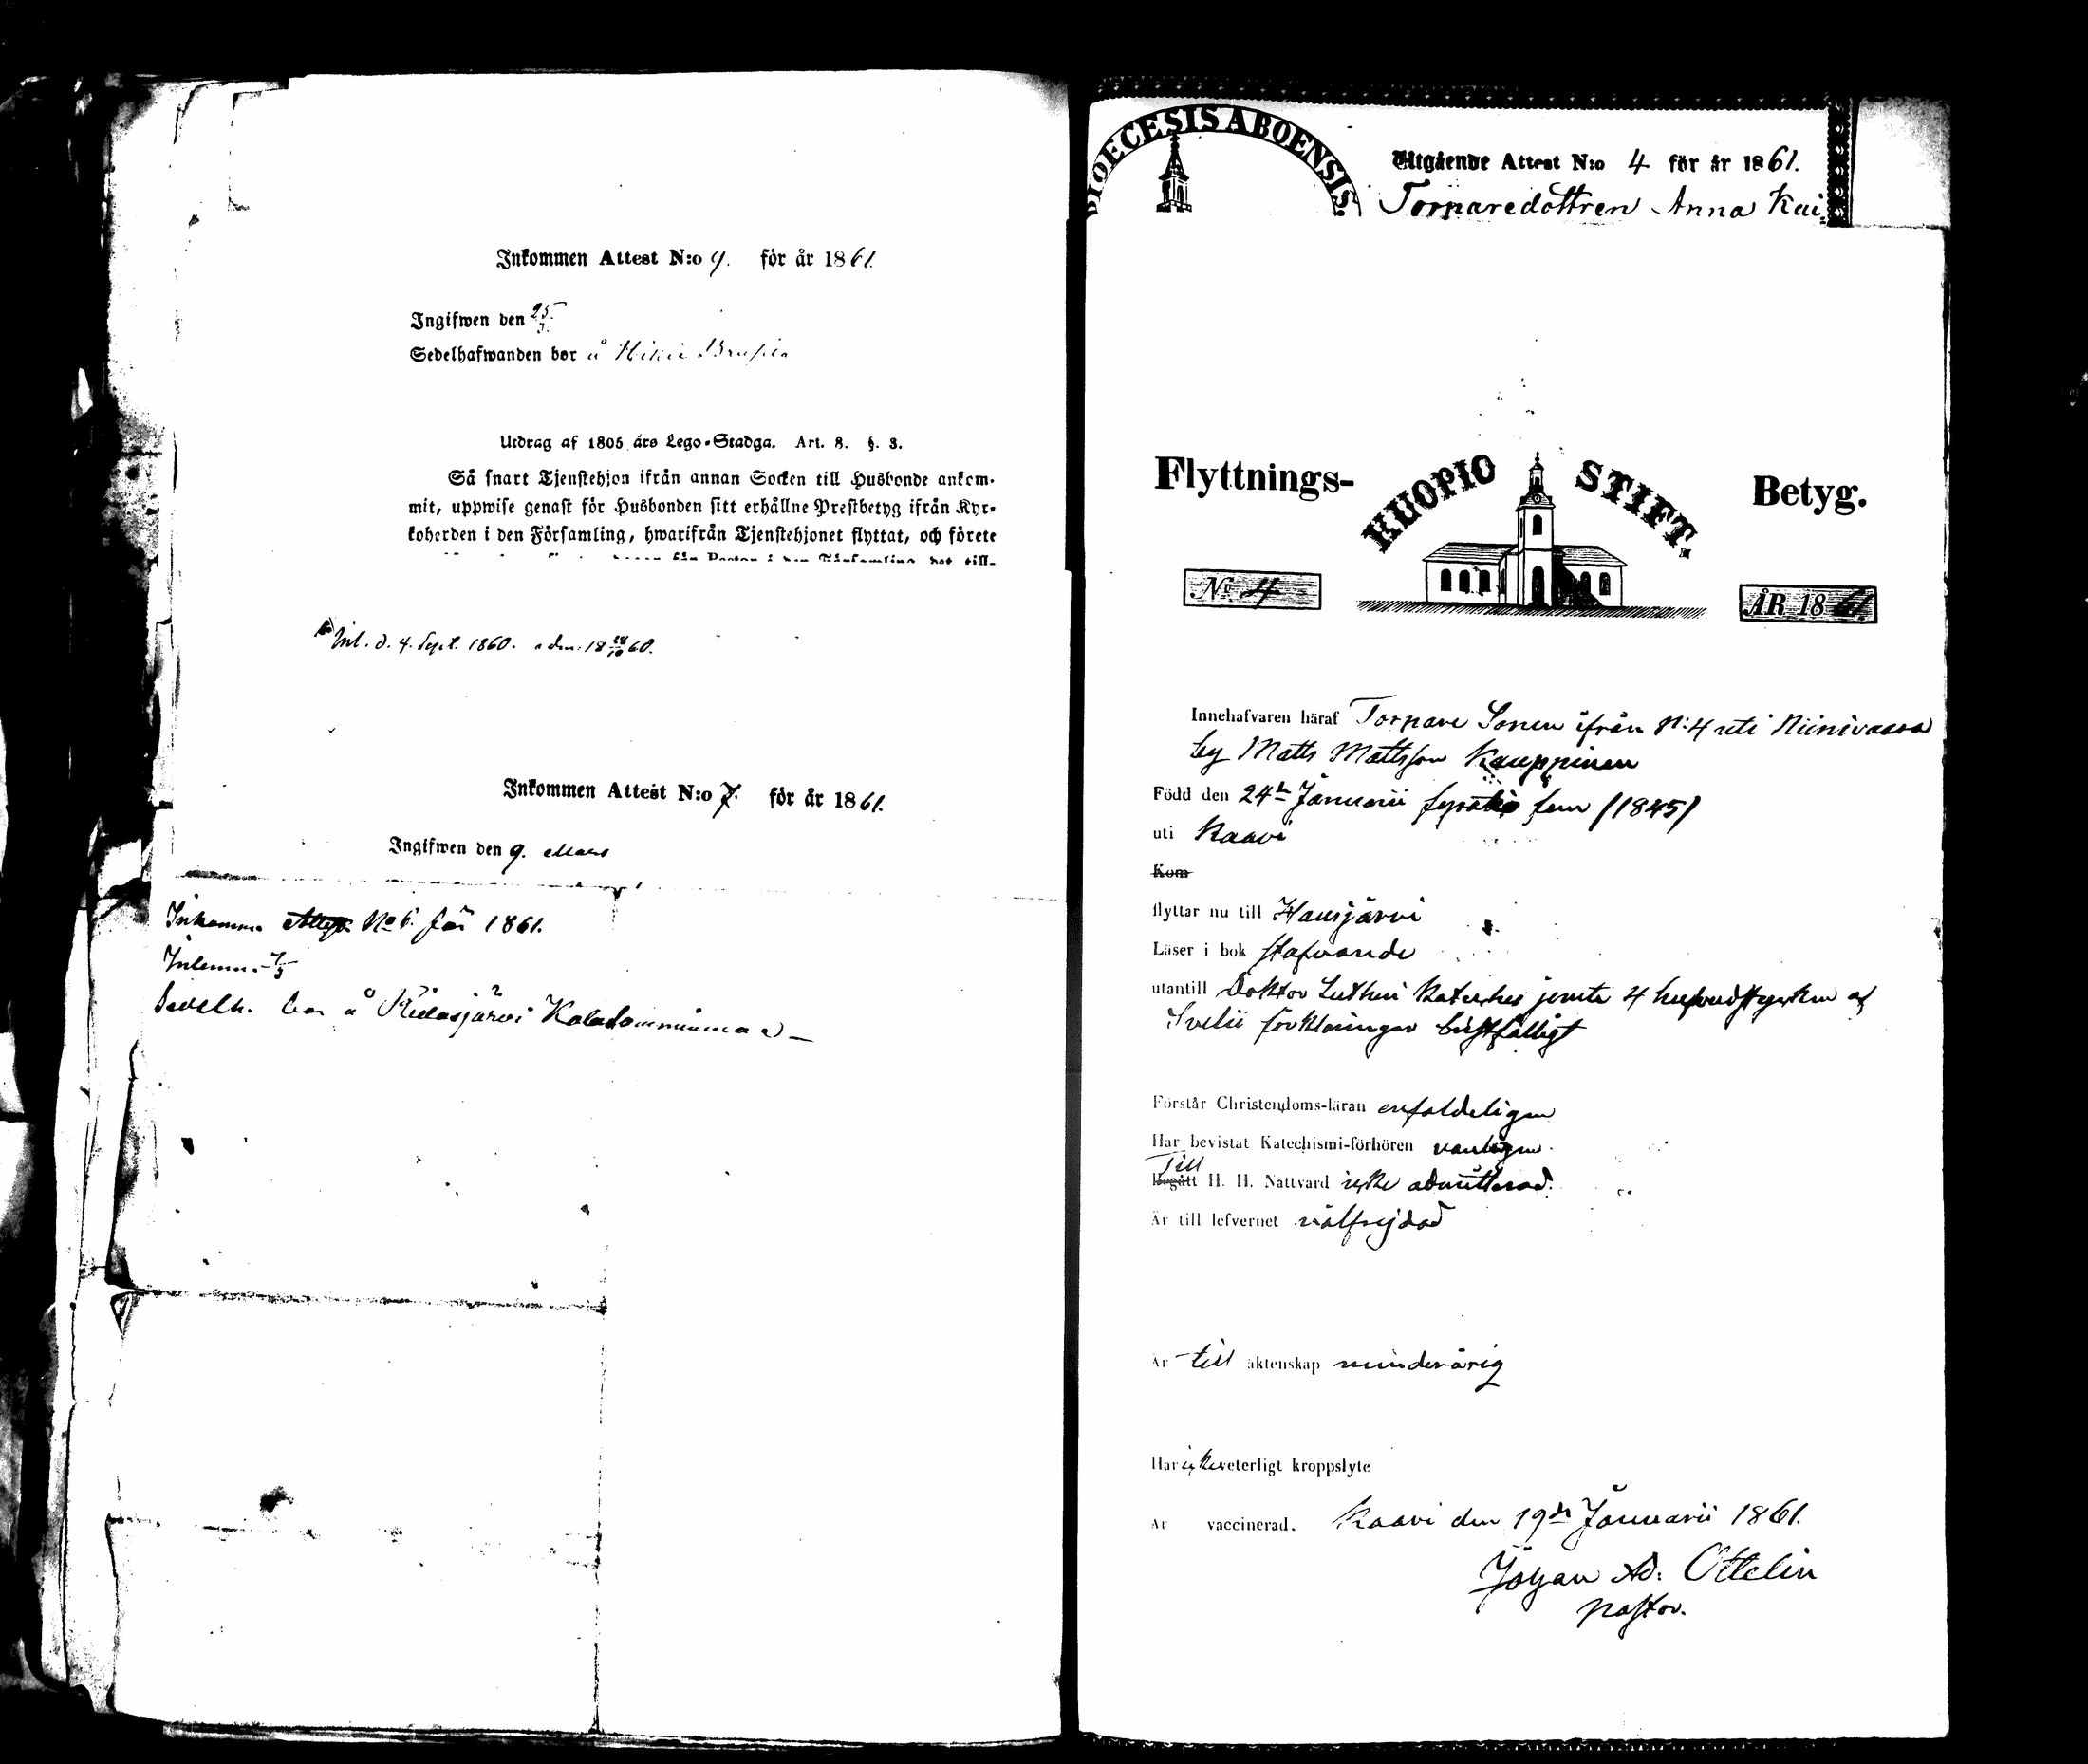 Inkommen Attest N:o 9. för år 1861.
Ingifwen den 25/3.
Sedelhafwanden bor å
Utdrag af 1805 års Lego-Stadga. Art. 8. §. 3.
Så snart Tjenstehjon ifrån annan Socken till Husbonde ankom-
mit, uppwise genast för Husbonden sitt erhållne Prestbetyg ifrån Kyr-
koherden i den Församling, hwarifrån Tjenstehjonet flyttat, och förete
Pastor i den Församling, det till-
Inl. d. 4. Sept. 1860.
Inkommen Attest N:o 7. för år 1861.
Ingifwen den 9. Mars
Inkomna No 6. för 1861.
Sedelh. bor å
DIOECESIS ABOENSIS.
Utgående Attest N:o 4 för år 1861.
Torparedottren Anna Kai
Flyttnings-
KUOPIO STIFT.
Betyg.
No 4
ÅR 1861
Innehafvaren häraf Torpare Sonen ifrån N:4 uti Niinivaara
by Matts Mattsson Kauppinen
Född den 24de Januarii fyratio fem (1845)
uti Kaavi
Kom
flyttar nu till Hausjärvi
Läser i bok stafvande
utantill Doktor Lutheri Kateches jemte 4 hufvudstycken af
Svebii förklaringar bristfälligt
Förstår Christendoms-läran enfaldeligen
Har bevistat Katechismi-förhören vanligen
Till
Begått H. H. Nattvard icke admitterad.
Är till lefvernet välfrejdad
Är till äktenskap minderårig
Har icke veterligt kroppslyte
Är vaccinerad. Kaavi den 19de Januarii 1861.
Johan Ad: Ottelin
Pastor.